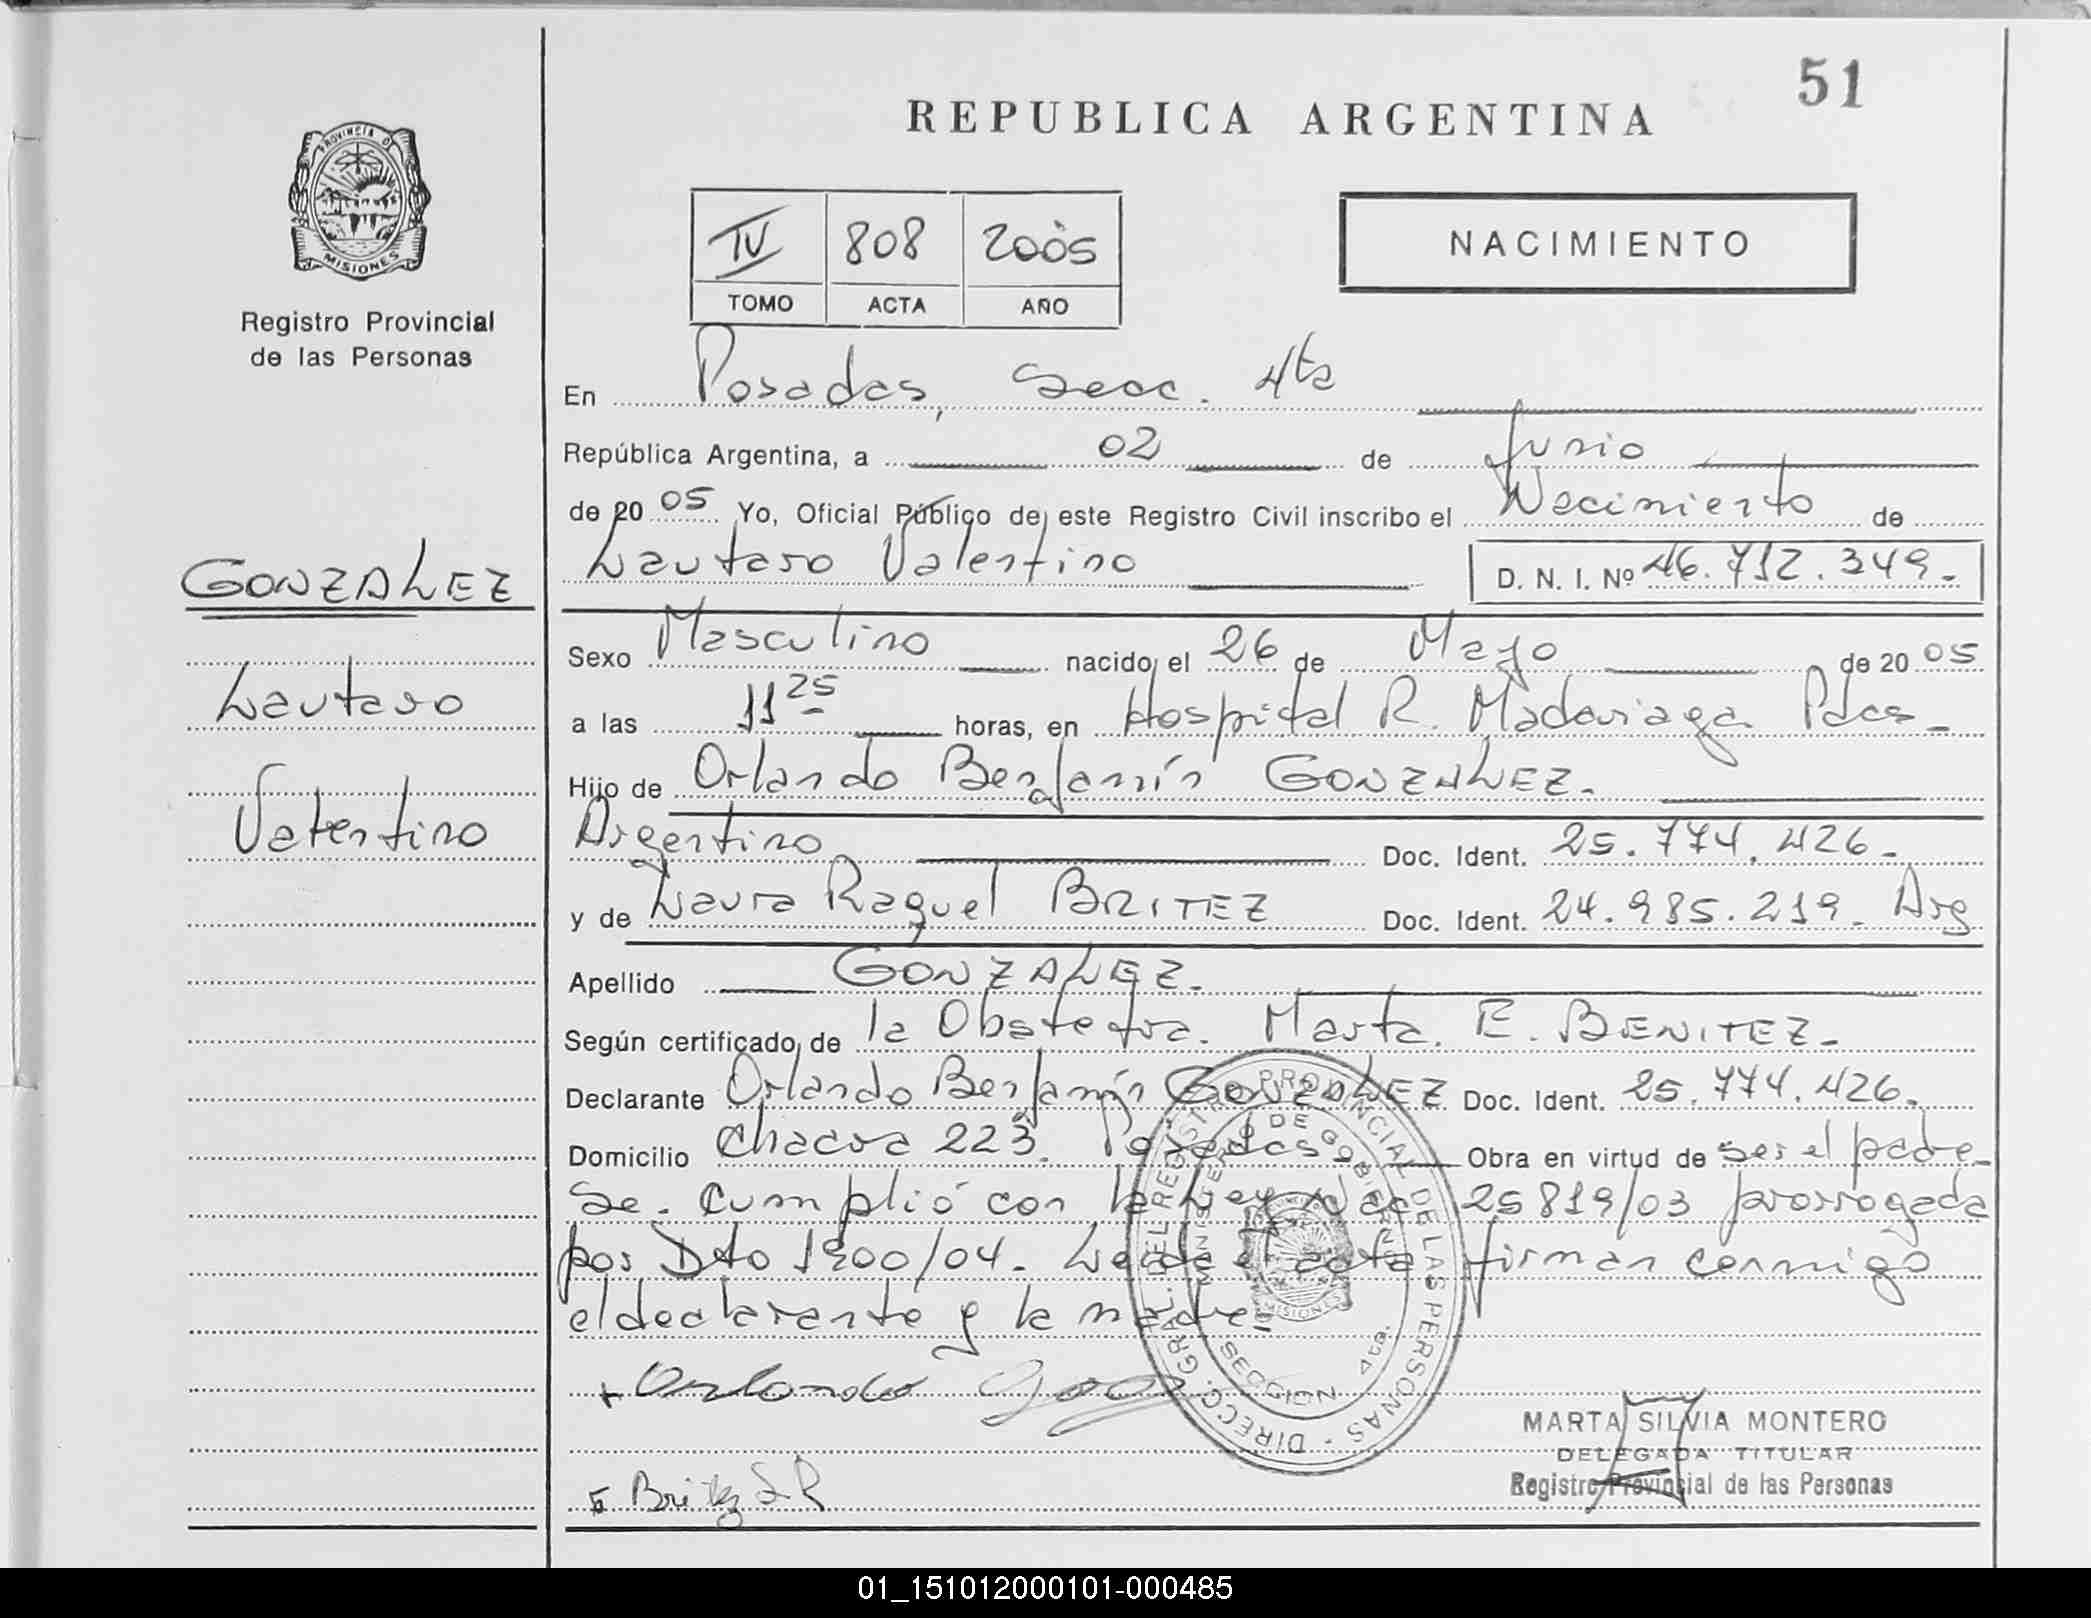 51
REPUBLICA ARGENTINA
PROVINCIA DE MISIONES
Registro Provincial
de las Personas
IV 808 2005
TOMO ACTA AÑO
NACIMIENTO
En Posadas, Secc. 4ta
República Argentina, a 02 de Junio
de 2005 Yo, Oficial Público de este Registro Civil inscribo el Nacimiento de
Lautaro Valentino D. N. I. Nº 46.712.349.-
GONZALEZ
Lautaro
Valentino
Sexo Masculino nacido el 26 de Mayo de 2005
a las 11 25 horas, en Hospital R. Madariaga Pdas-
Hijo de Orlando Benjamín GONZALEZ.
Argentino Doc. Ident. 25.774.426-
y de Laura Raquel BRITEZ Doc. Ident. 24.985.219- Arg
Apellido GONZALEZ.
Según certificado de la Obstetra. Marta. E. BENITEZ-
Declarante Orlando Benjamín GONZALEZ Doc. Ident. 25.774.426.
Domicilio Chacra 223. Posadas. Obra en virtud de ser el padre-
Se. cumplió con la Ley Nac 25819/03 prorrogada
por Dto 1900/04. Leída el acta firman conmigo
el declarante y la madre-
Orlando
Britez L R
DIRECC. GRAL. DEL REGISTRO PROVINCIAL DE LAS PERSONAS -
MINISTERIO DE GOBIERNO
MISIONES
SECCION 4ta.
MARTA SILVIA MONTERO
DELEGADA TITULAR
Registro Provincial de las Personas
01_151012000101-000485